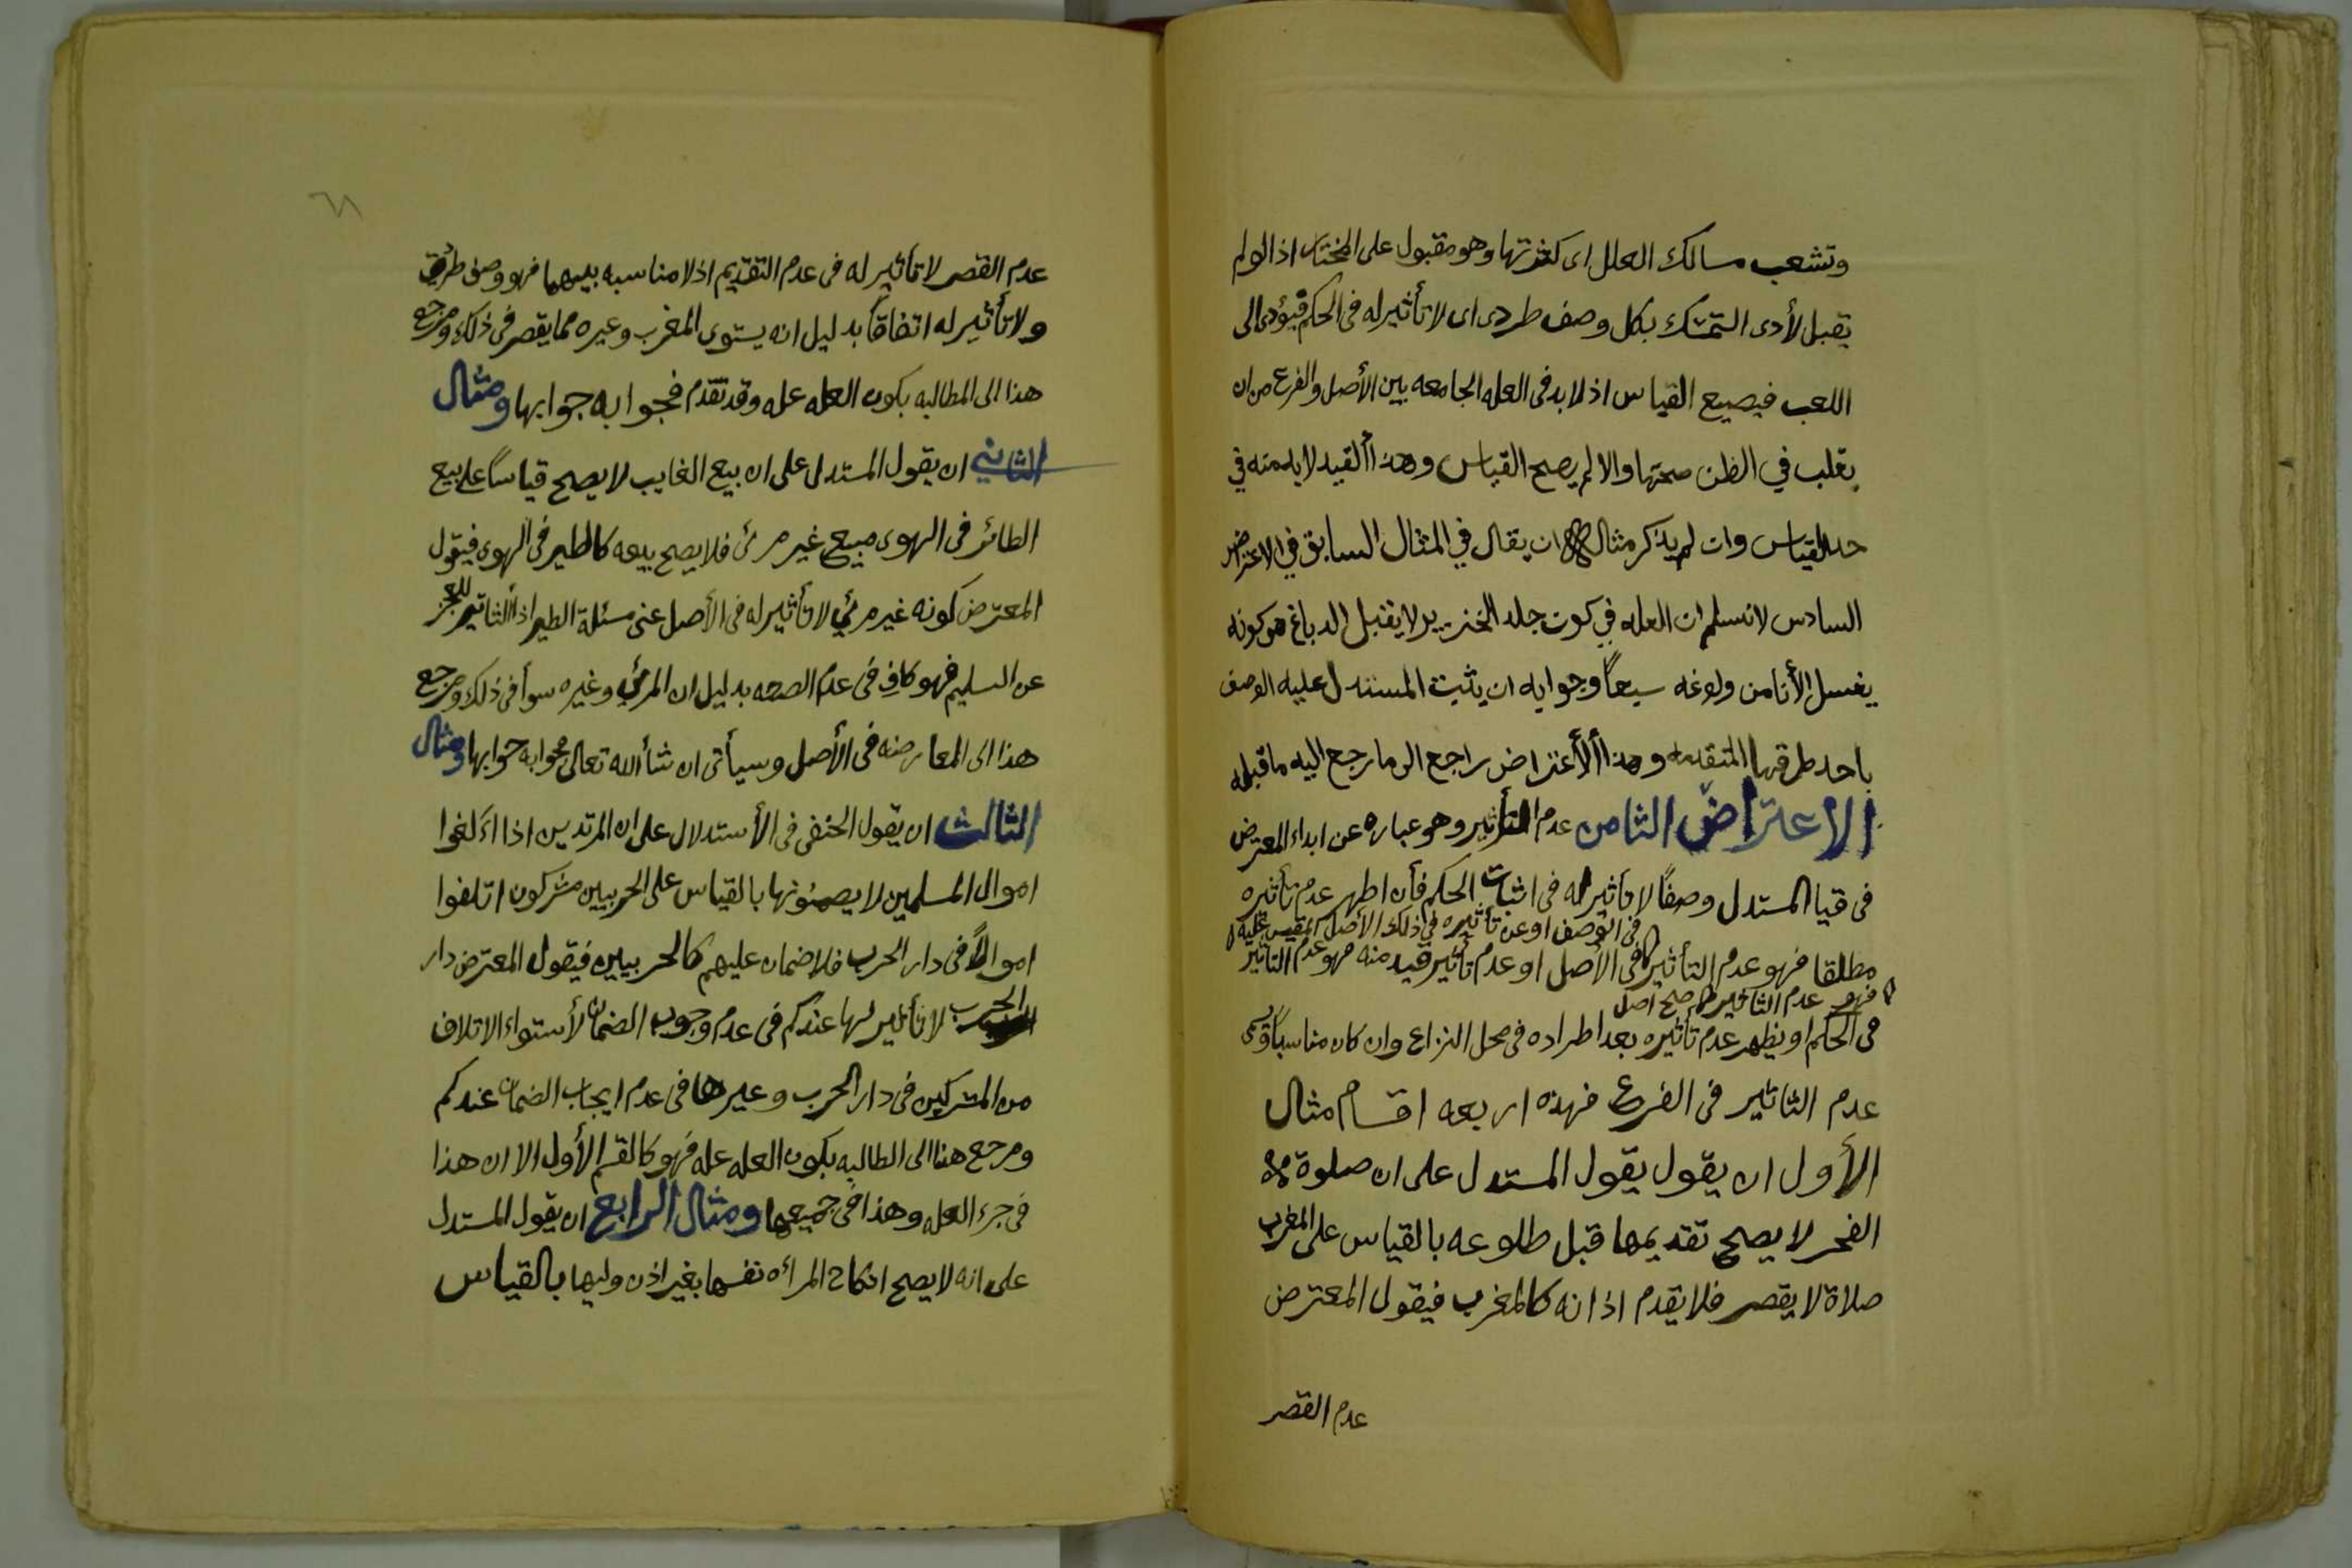 وتشعب مسالك العلل اى كثرتها وهو مقبول على المختار اذ الولم
يقبل لأدى التمسك بكل وصف طردى اى لا تأثير له فى الحكم فيؤدى الى
اللعب فيصيع القياس اذ لا بد فى العله الجامعه بين الأصل والفرع من ان
يغلب في الظن صحتها والا لم يصح القياس وهذا ألقيد لا بد منه في
حد القياس وان لم يذكر مثال ان يقال في المثال السابق في الاعتراض
السادس لا نسلم ان العله في كون جلد الخنزير لا يقبل الدباغ هو كونه
يغسل الأنا من ولوغه سبعاً وجوابه ان يثبت المستدل عليه الوصف
باحد طرقها المتقدمه وهذا ألأعتراض راجع الى ما رجع اليه ما قبله
الاعتراض الثامن عدم التأثير وهو عباره عن ابداء المعترض
فى قيا المستدل وصفًا لا تأثير له فى اثبات الحكم فأن اظهر عدم تأثيره
فى الوصف او عن تأثيره في ذلك الأصل المقيس عليه
مطلقا فهو عدم التأثير فى الأصل او عدم تأثير قيد منه فهو عدم التأثير
فهو عدم التاثير صح اصل
فى الحكم او يظهر عدم تأثيره بعد اطراده فى محل النزاع وان كان مناسباً فهو
عدم التاثير فى الفرع فهذه اربعه اقسام مثال
الأول ان يقول يقول المستدل على ان صلوة
الفجر لا يصح تقديمها قبل طلوعه بالقياس على المغرب
صلاة لا يقصر فلا يقدم اذانه كالمغرب فيقول المعترض
عدم القصر
عدم القصر لا تأثير له فى عدم التقديم اذ لا مناسبه بينهما فهو وصف طردى
ولا تأثير له اتفاقاً بدليل انه يستوى المغرب وغيره مما يقصر فى ذلك ومرجع
هذا الى المطالبه بكون العله عله وقد تقدم فجوابه جوابها ومثال
الثاني ان يقول المستدل على ان بيع الغايب لا يصح قياساً على بيع
الطائر فى الهوى مبيع غير مرئ فلا يصح بيعه كالطير فى الهوى فيقول
المعترض كونه غير مرئي لا تأثير له فى الأصل عنى مسئلة الطير اذ ألتاثير للعجز
عن التسليم فهو كاف فى عدم الصحه بدليل ان المرئي وغيره سوأ فى ذلك ومرجع
هذا الى المعارضه فى الأصل وسيأتى ان شأ الله تعالى فجوابه جوابها ومثال
الثالث ان يقول الحنفى فى الأستدلال على ان المرتدين اذا اتلفوا
اموال المسلمين لا يضمنونها بالقياس على الحربيين مشركون اتلفوا
اموالاً فى دار الحرب فلا ضمان عليهم كالحربيين فيقول المعترض دار
الحرب لا تأثير لها عندكم فى عدم وجوب الضمان لأستواء الاتلاف
من المشركين فى دار الحرب وغيرها فى عدم ايجاب الضمان عندكم
ومرجع هذا الى الطالبه بكون العله عله فهو كالقسم الأول الا ان هذا
فى جزء العله وهذا فى جميعها ومثال الرابع ان يقول المستدل
على انه لا يصح انكاح المرأه نفسها بغير اذن وليها بالقياس